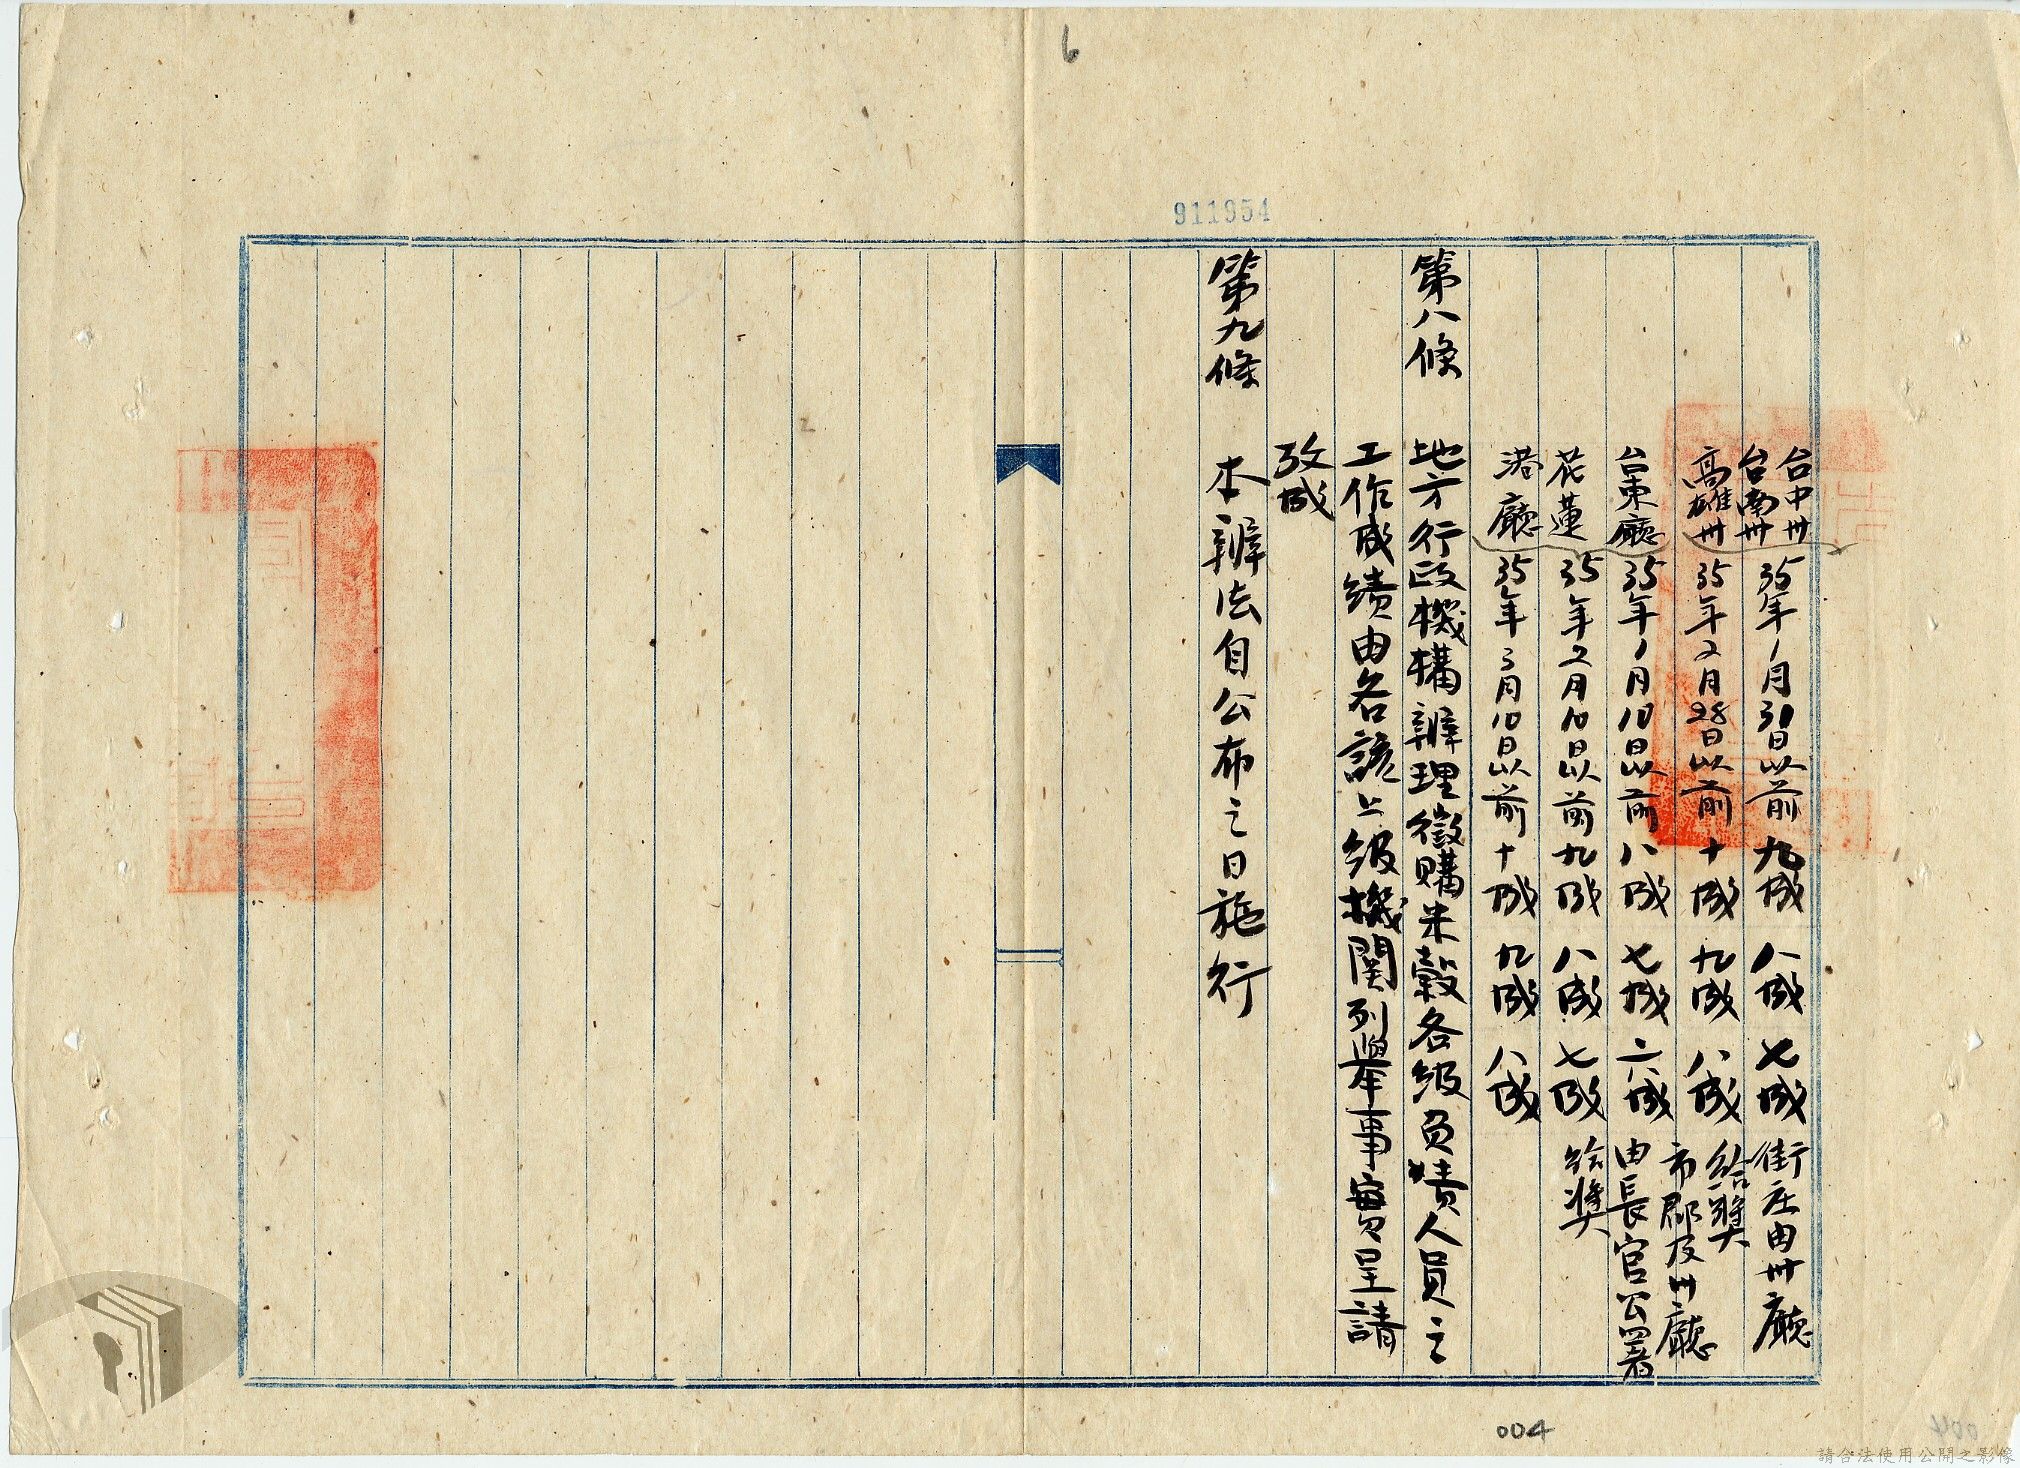 6
911954
台中卅
台南卅 35年1月31日以前 九成 八成 七成 街庄由卅廳
高雄卅 35年2月28日以前 十成 九成 八成 給獎
市郡及卅廳
台東廳 35年1月10日以前 八成 七成 六成 由長官公署
花蓮 35年2月10日以前 九成 八成 七成 給獎
港廳 35年3月10日以前 十成 九成 八成
第八條 地方行政機構辦理徵購米穀各級負責人員之
工作成績由各該上級機関列舉事實呈請
攷成
第九條 本辦法自公布之日施行
004
請合法使用公開之影像